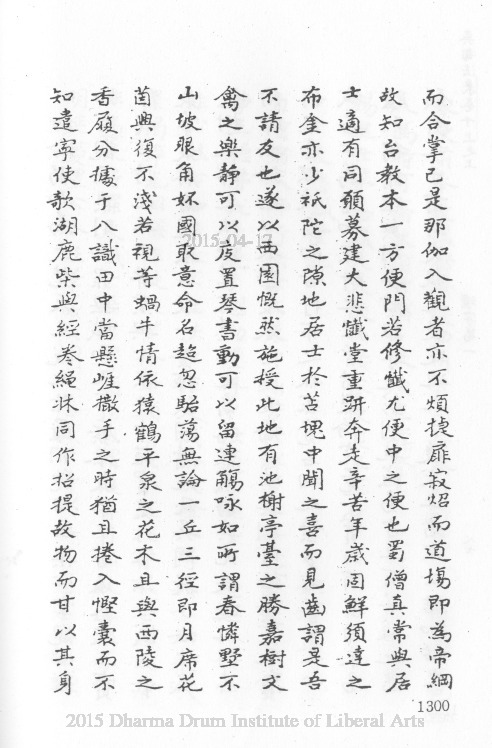 而合掌已是那伽入觀者亦不煩挨扉寂炤而道場即為帝網
故知台教本一方便門若修懺尤便中之便也蜀僧真常與居
士適有同願募建大悲懺堂重趼奔走辛苦年歲固鮮須達之
布金亦少祇陀之隙地居士於苫塊中聞之喜而見齒謂是吾
不請友也遂以西園慨然施授此地有池榭亭臺之勝嘉樹文
禽之樂靜可以庋置琴書動可以留連觴咏如所謂春憐墅不
山坡眼角妚國取意命名超忽駘蕩無論一丘三徑即月席花
茵興復不淺若視等蝸牛情依猿鶴平泉之花木且與西陵之
香履分據于八識田中當懸崖撒手之時猶且捲入慳囊而不
知遣寧使欹湖鹿柴與經卷繩牀同作招提故物而甘以其身
1300
2015-04-17
2015 Dharma Drum Institute of Liberal Arts